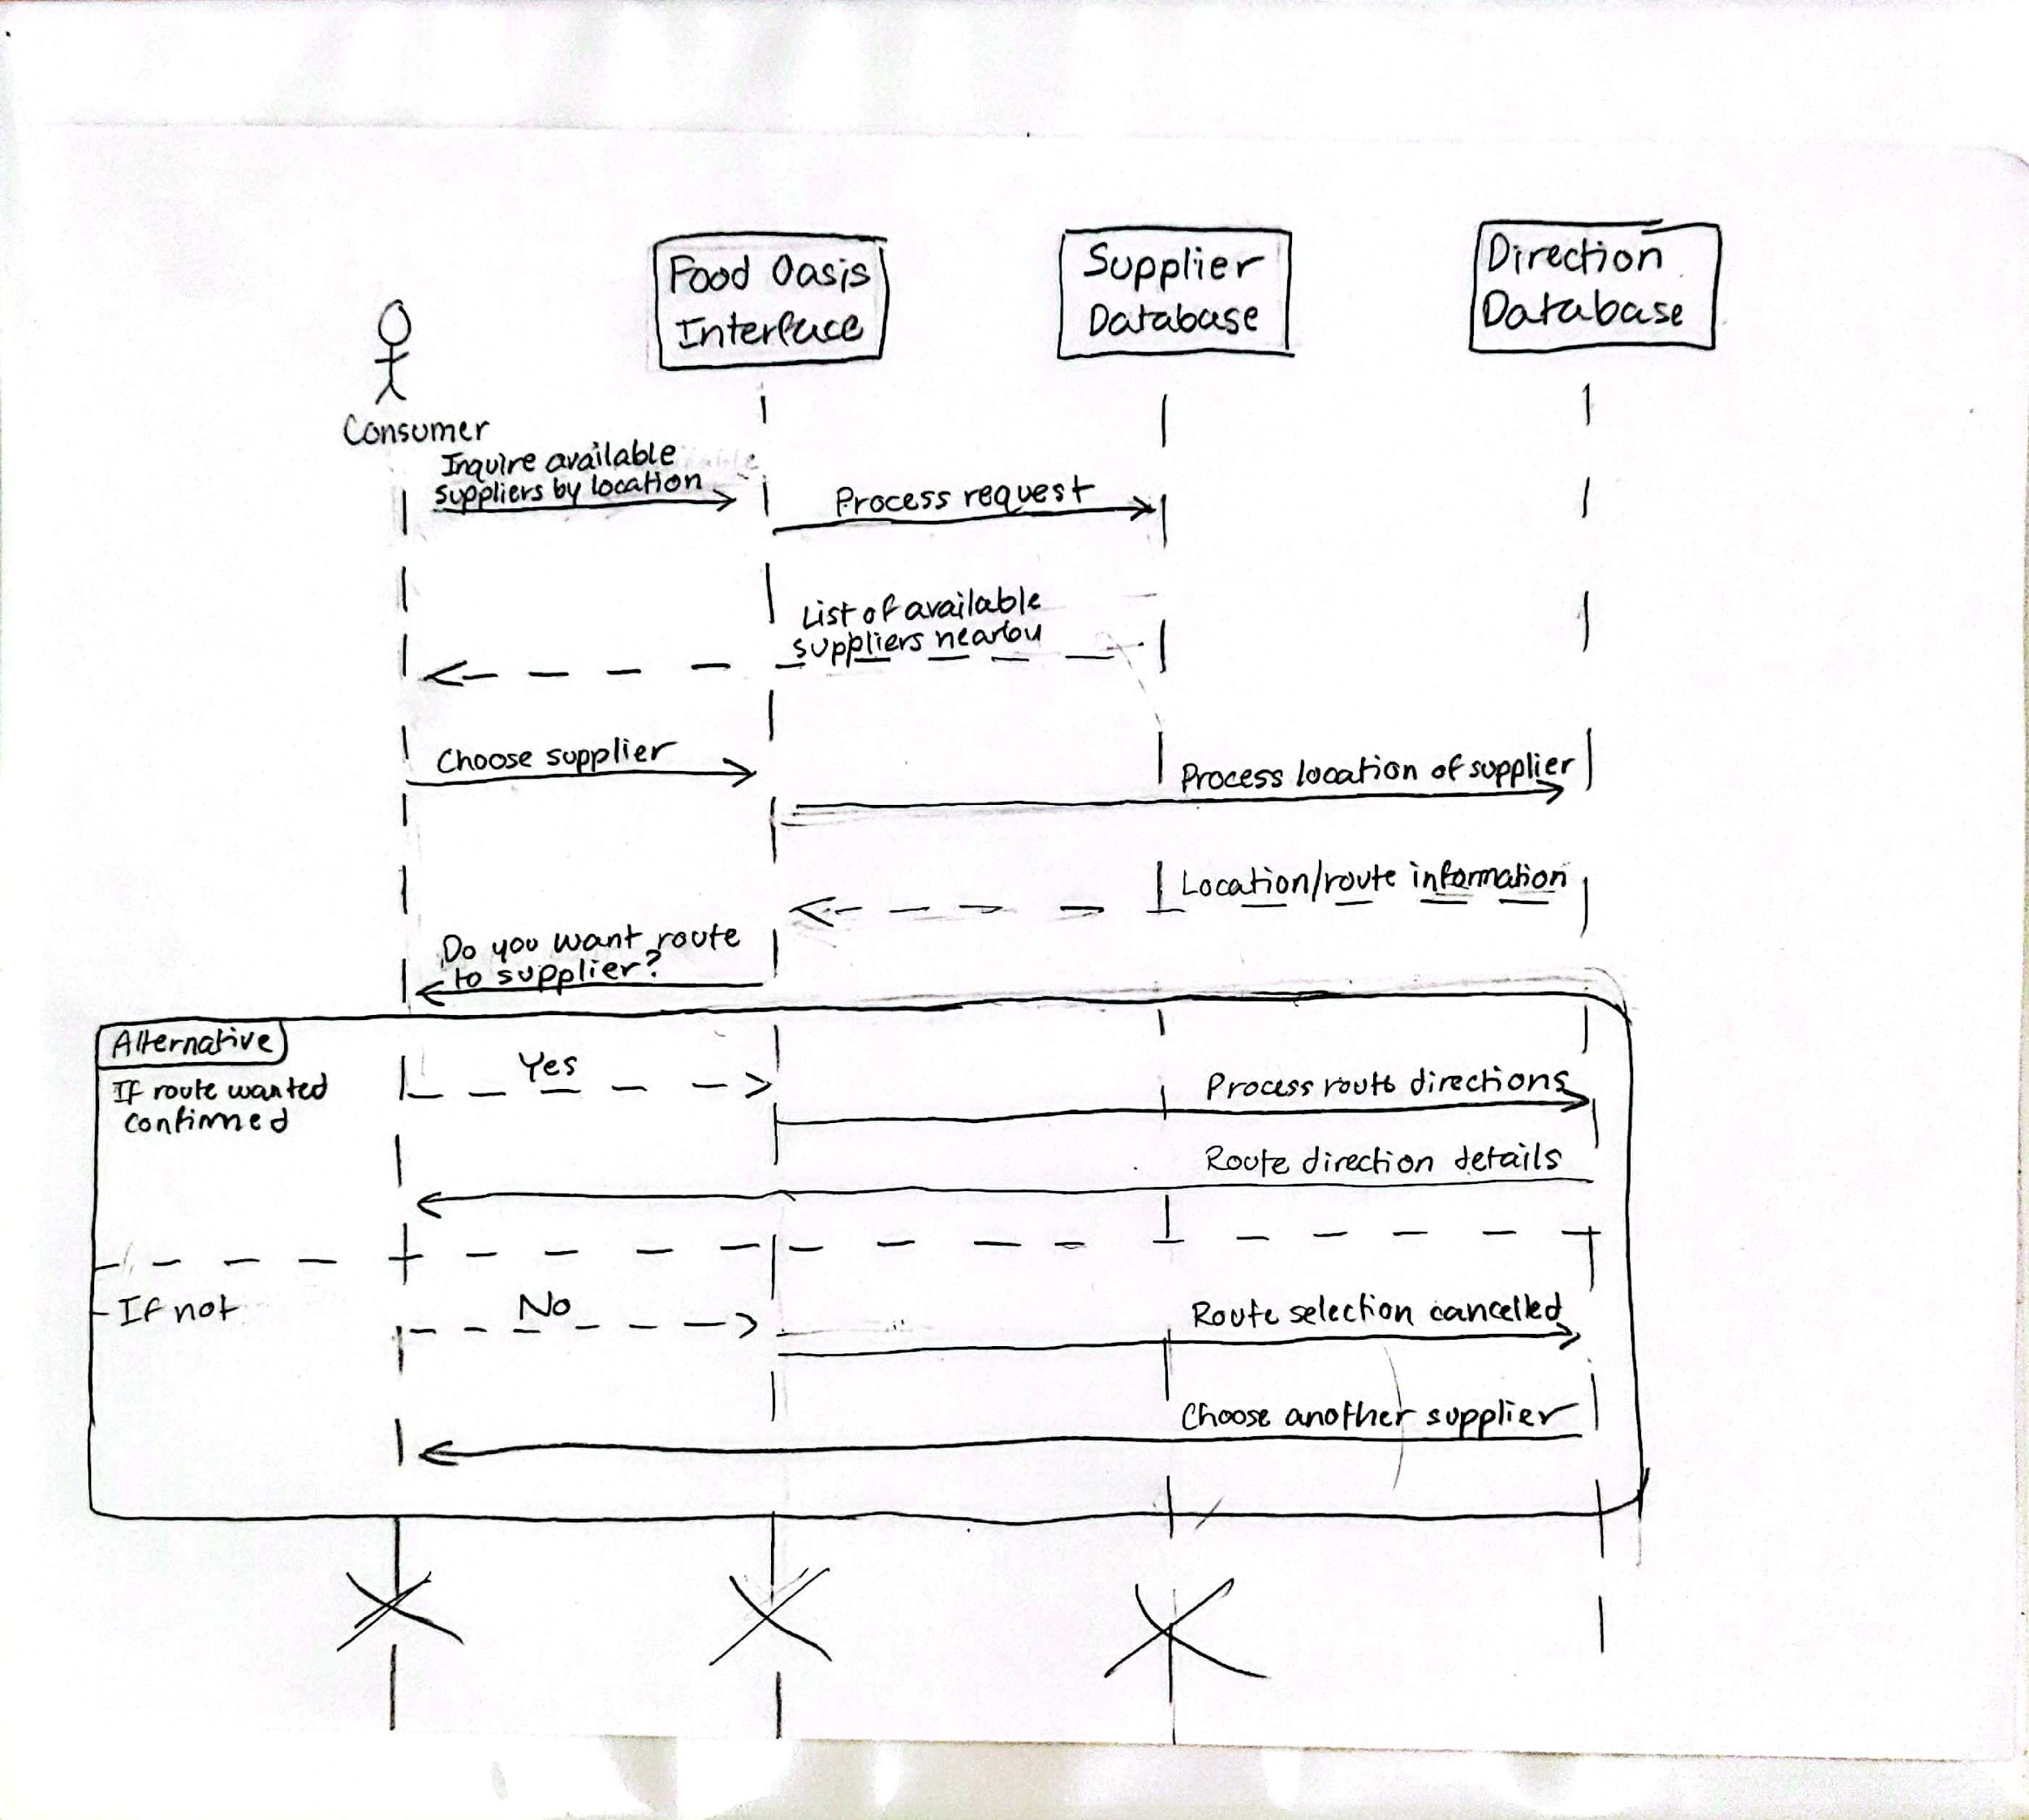 Food Oasis
Interface
Supplier
Database
Direction
Database
Consumer
Inquire available
suppliers by location
Process request
List of available
suppliers nearby
Choose supplier
Process location of supplier
Location/route information
Do you want route
to supplier?
Alternative
If route wanted
confirmed
Yes
Process route directions
Route direction details
If not
No
Route selection cancelled
Choose another supplier